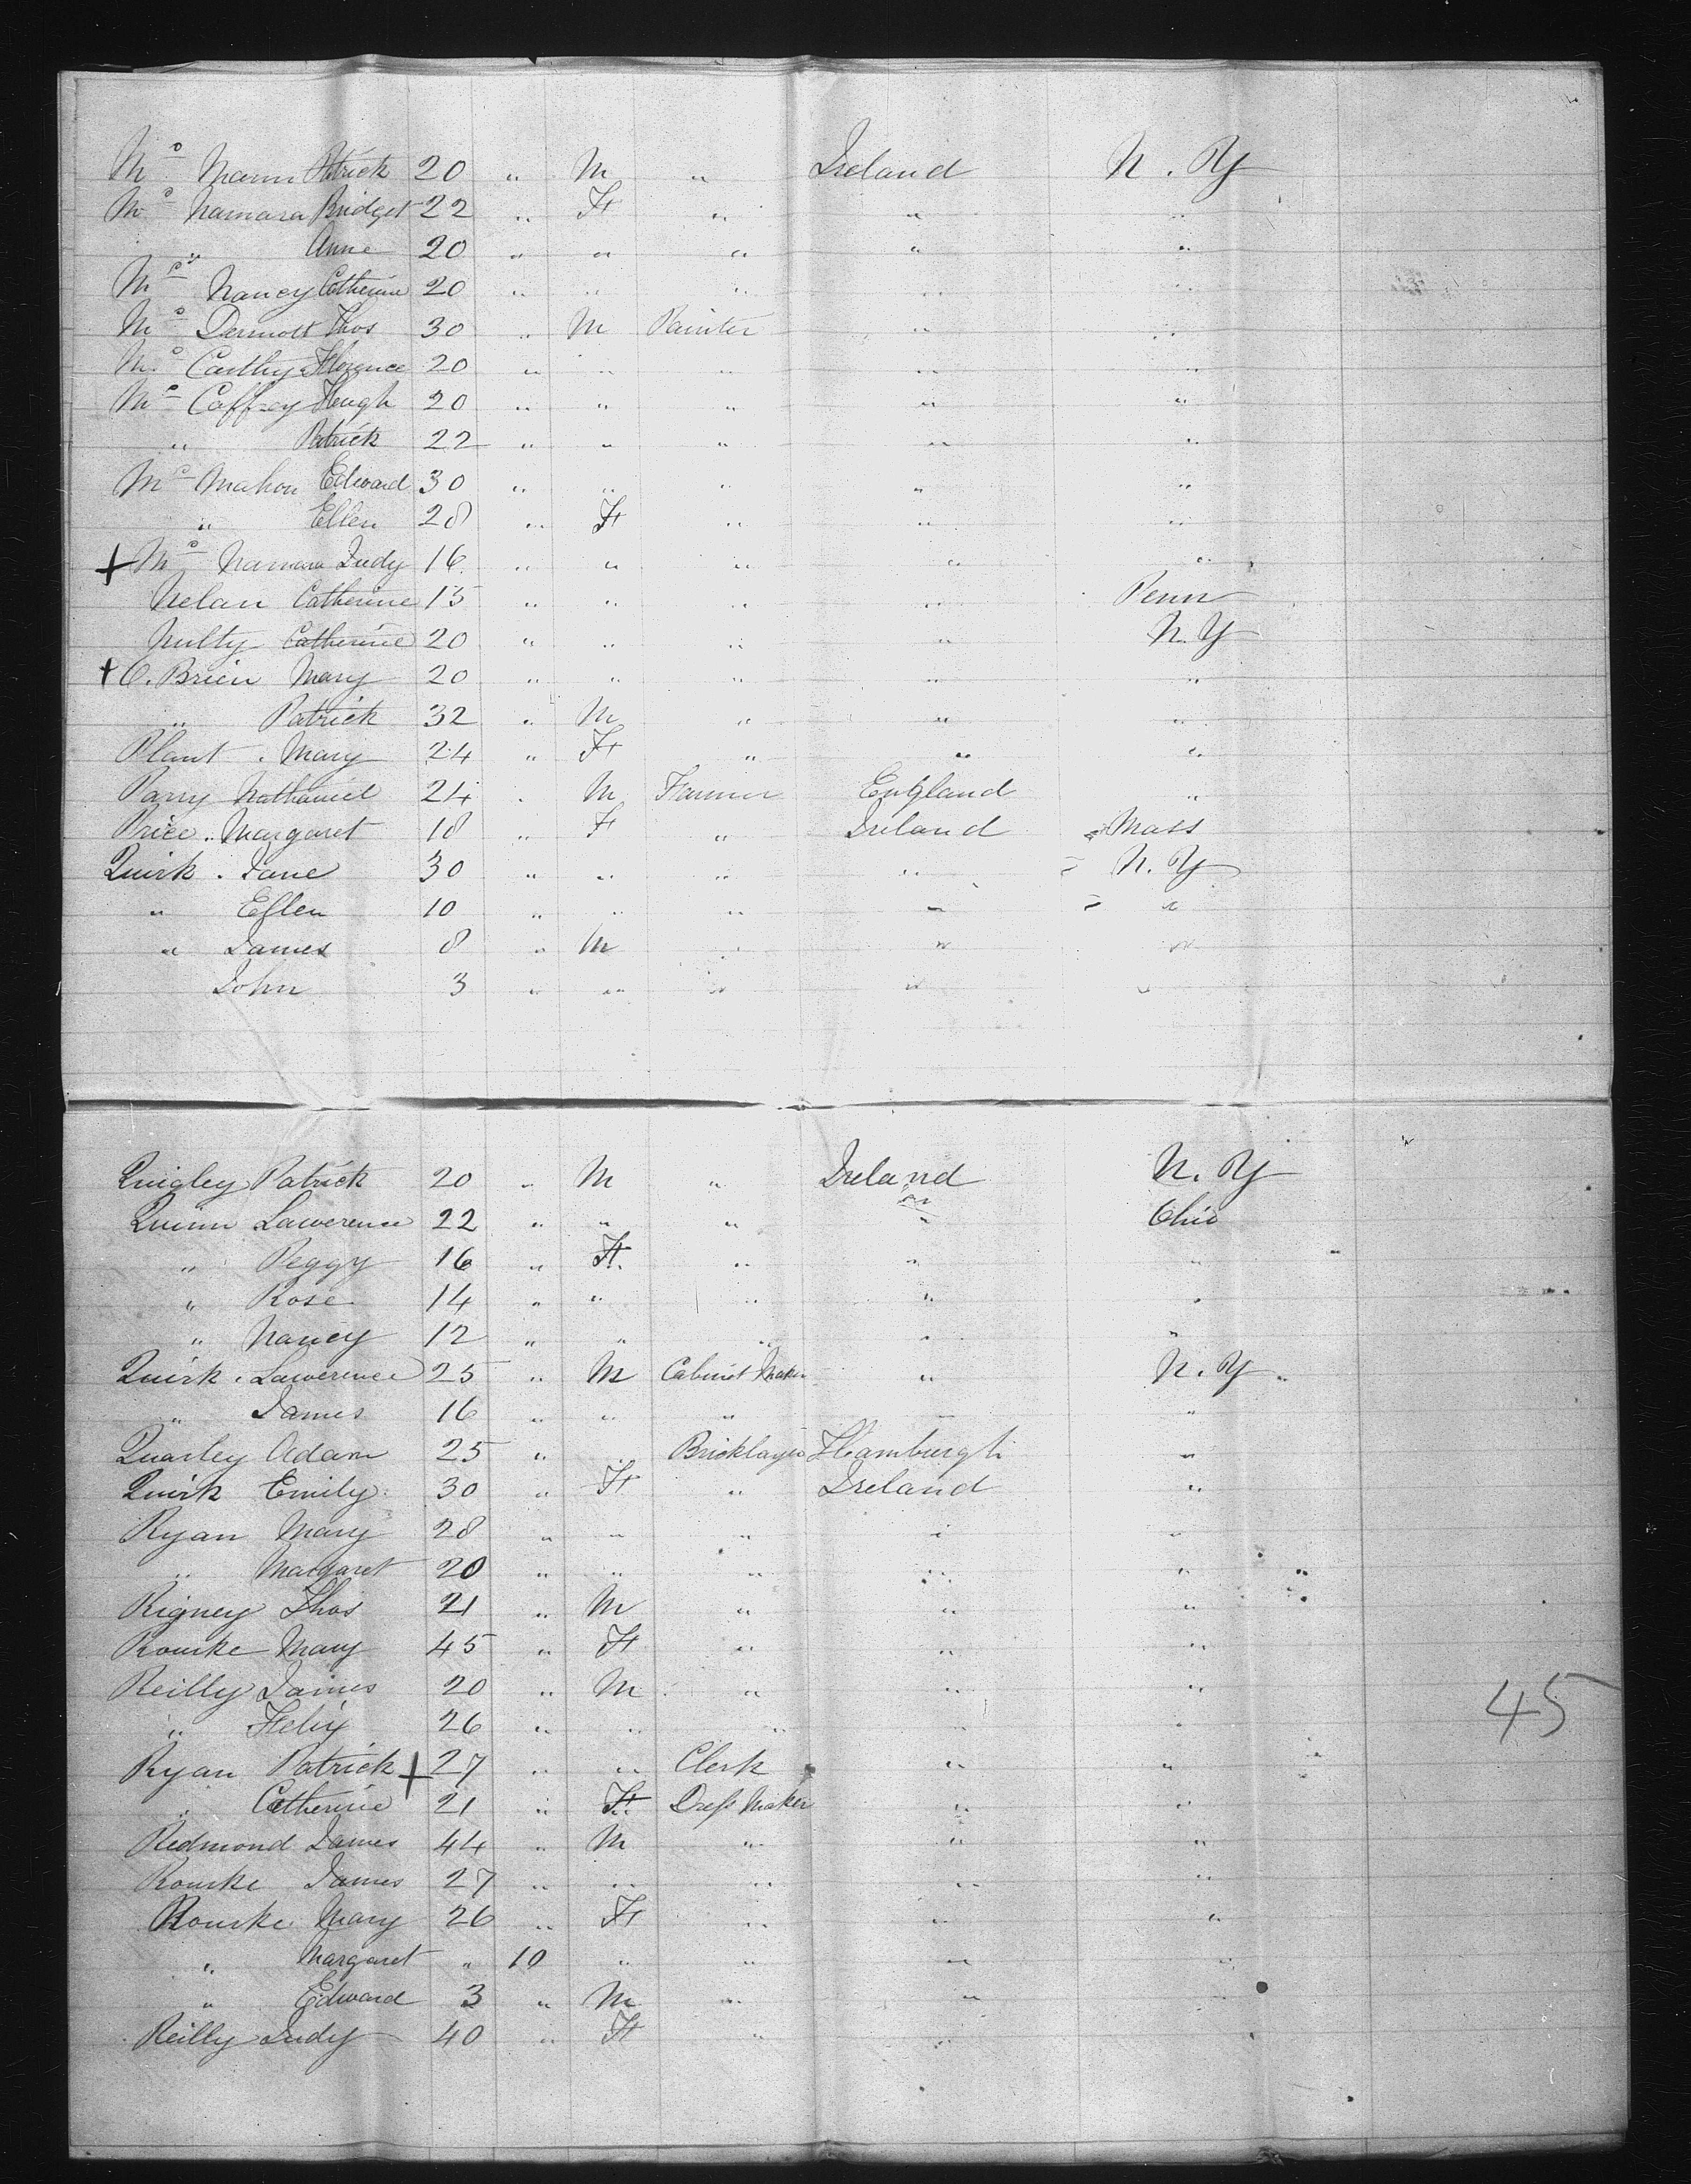 Mc Mann Patrick 20 " M " Ireland N. Y
Mc Namara Bridget 22 " F " " "
" Anne 20 " " " " "
Mc Nancy Catherine 20 " " " " "
Mc Dermott Thos 30 " M Painter " "
Mc Carthy Florence 20 " " " " "
Mc Caffrey Hugh 20 " " " " "
" Patrick 22 " " " " "
Mc Mahon Edward 30 " " " " "
" Ellen 28 " F " " "
+ Mc Namara Judy 16 " " " " "
Nelan Catherine 15 " " " " Penn
Nulty Catherine 20 " " " " N. Y
+ O. Brien Mary 20 " " " " "
" Patrick 32 " M " " "
Plant . Mary 24 " F " " "
Parry Nathaniel 24 " M Farmer England "
Price .. Margaret 18 " F " Ireland Mass
Quirk . Jane 30 " " " " N. Y
" Ellen 10 " " " " "
" James 8 " M " " "
John 3 " " " " "
Quigley Patrick 20 " M " Ireland N. Y
Quinn Lawerence 22 " " " " Ohio
" Peggy 16 " F " " "
" Rose 14 " " " " "
" Nancy 12 " " " " "
Quirk . Lawerence 25 " M Cabinet Maker " N. Y
" James 16 " " " " "
Quarley Adam 25 " " Bricklayer Hamburgh "
Quirk Emily 30 " F " Ireland "
Ryan Mary 28 " " " " "
" Margaret 20 " " " " "
Rigney Thos 21 " M " " "
Rourke Mary 45 " F " " "
Reilly James 20 " M " " "
" Felix 26 " " " " "
45
Ryan Patrick + 27 " " Clerk " "
" Catherine 21 " F Dress Maker " "
Redmond James 44 " M " " "
Rourke James 27 " " " " "
Rourke Mary 26 " F " " "
" Margaret " 10 " " " "
" Edward 3 " M " " "
Reilly Judy 40 " F " " "